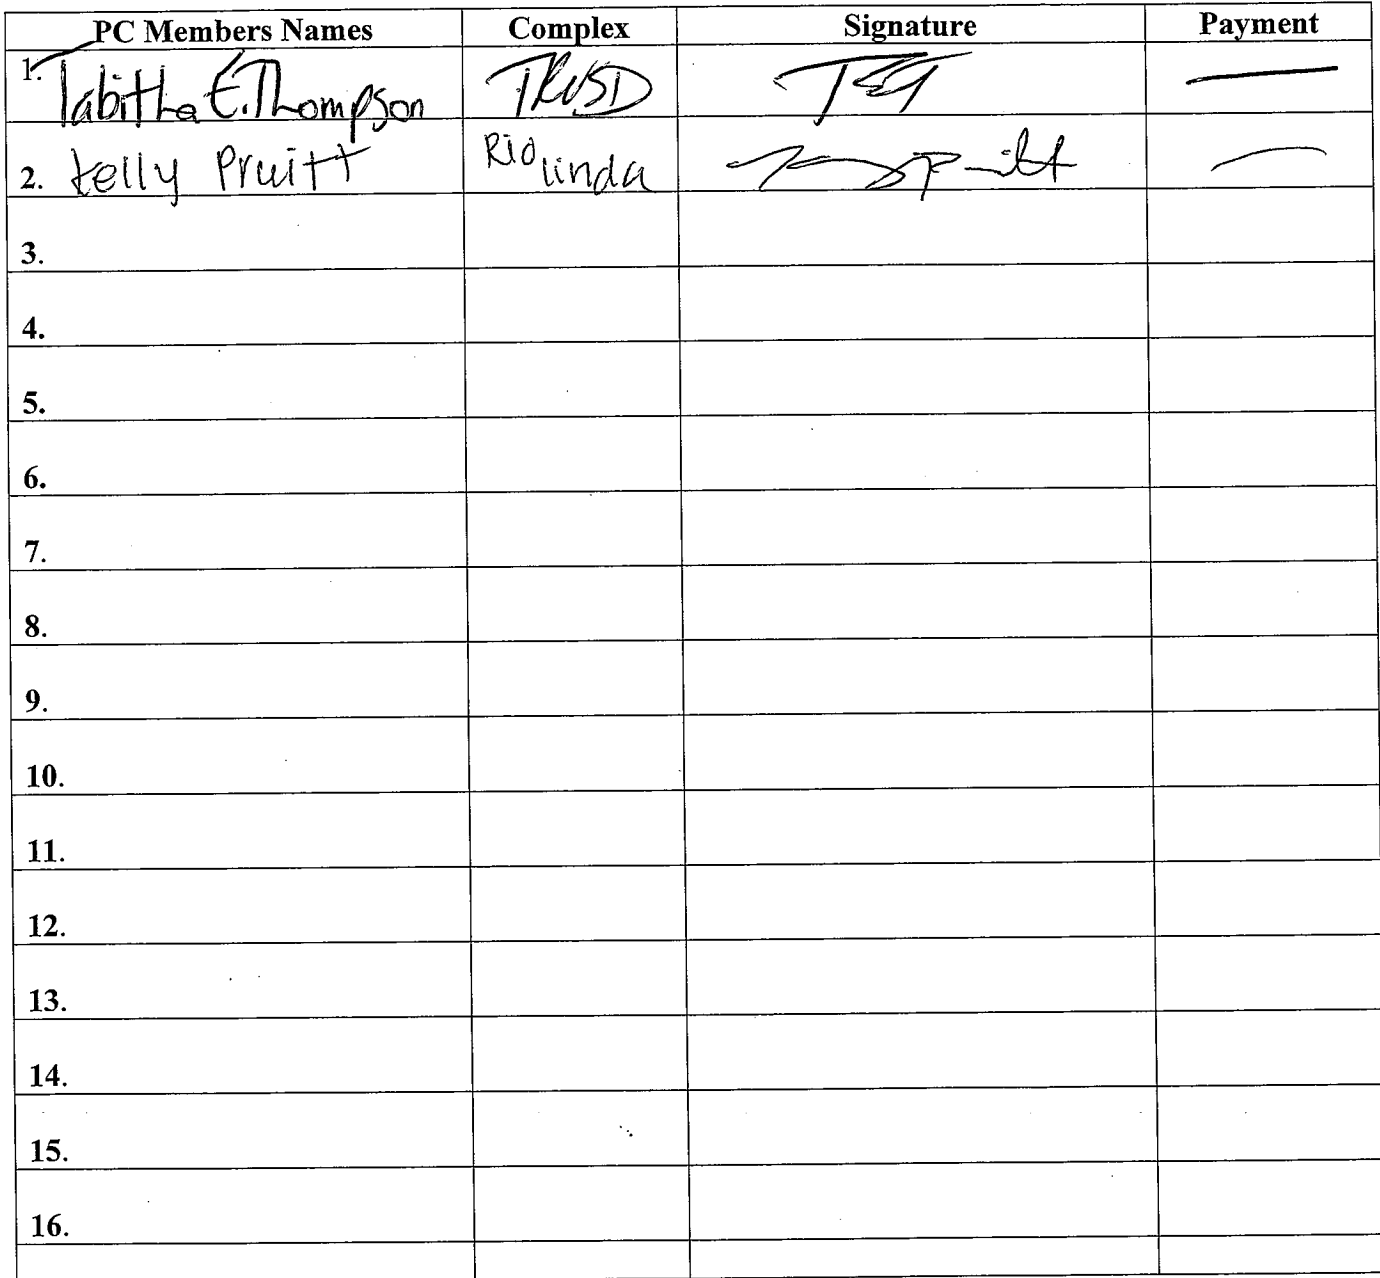 PC Members Names Complex Signature Payment
1. Tabitha E. Thompson TRUSD TET —
2. Kelly Pruitt Rio linda Pruitt —
3.
4.
5.
6.
7.
8.
9.
10.
11.
12.
13.
14.
15.
16.